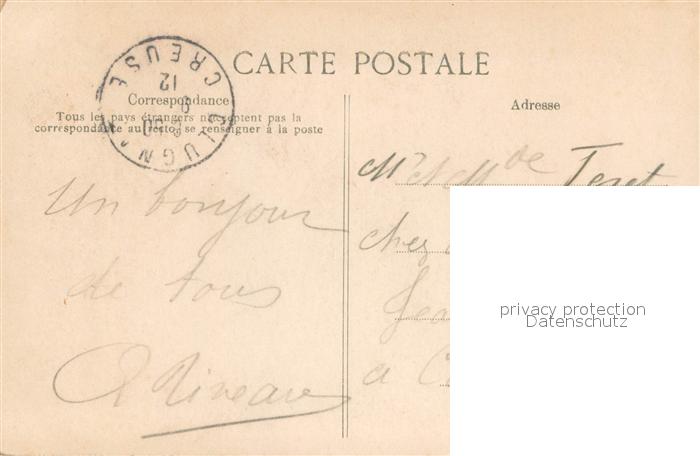 CARTE POSTALE
Correspondance
Tous les pays étrangers n'acceptent pas la
correspondance au recto, se renseigner à la poste
CREUSE
12
Un bonjour
de tous
Adresse
Mr et Mde
chez
à
privacy protection
Datenschutz